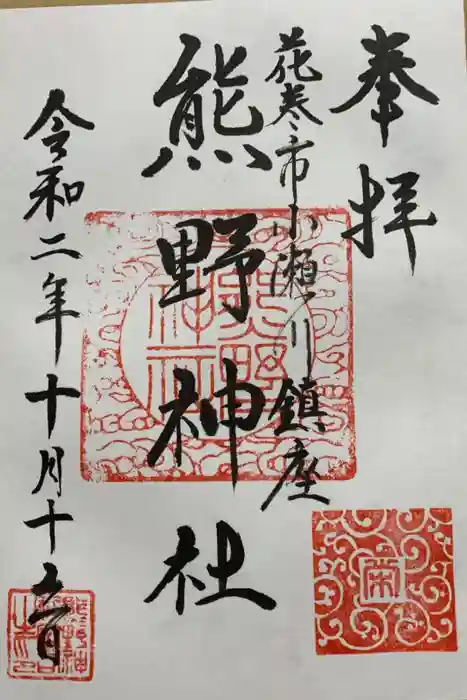 奉拝
花巻市小瀬川鎮座
熊野神社
令和二年十月十一日